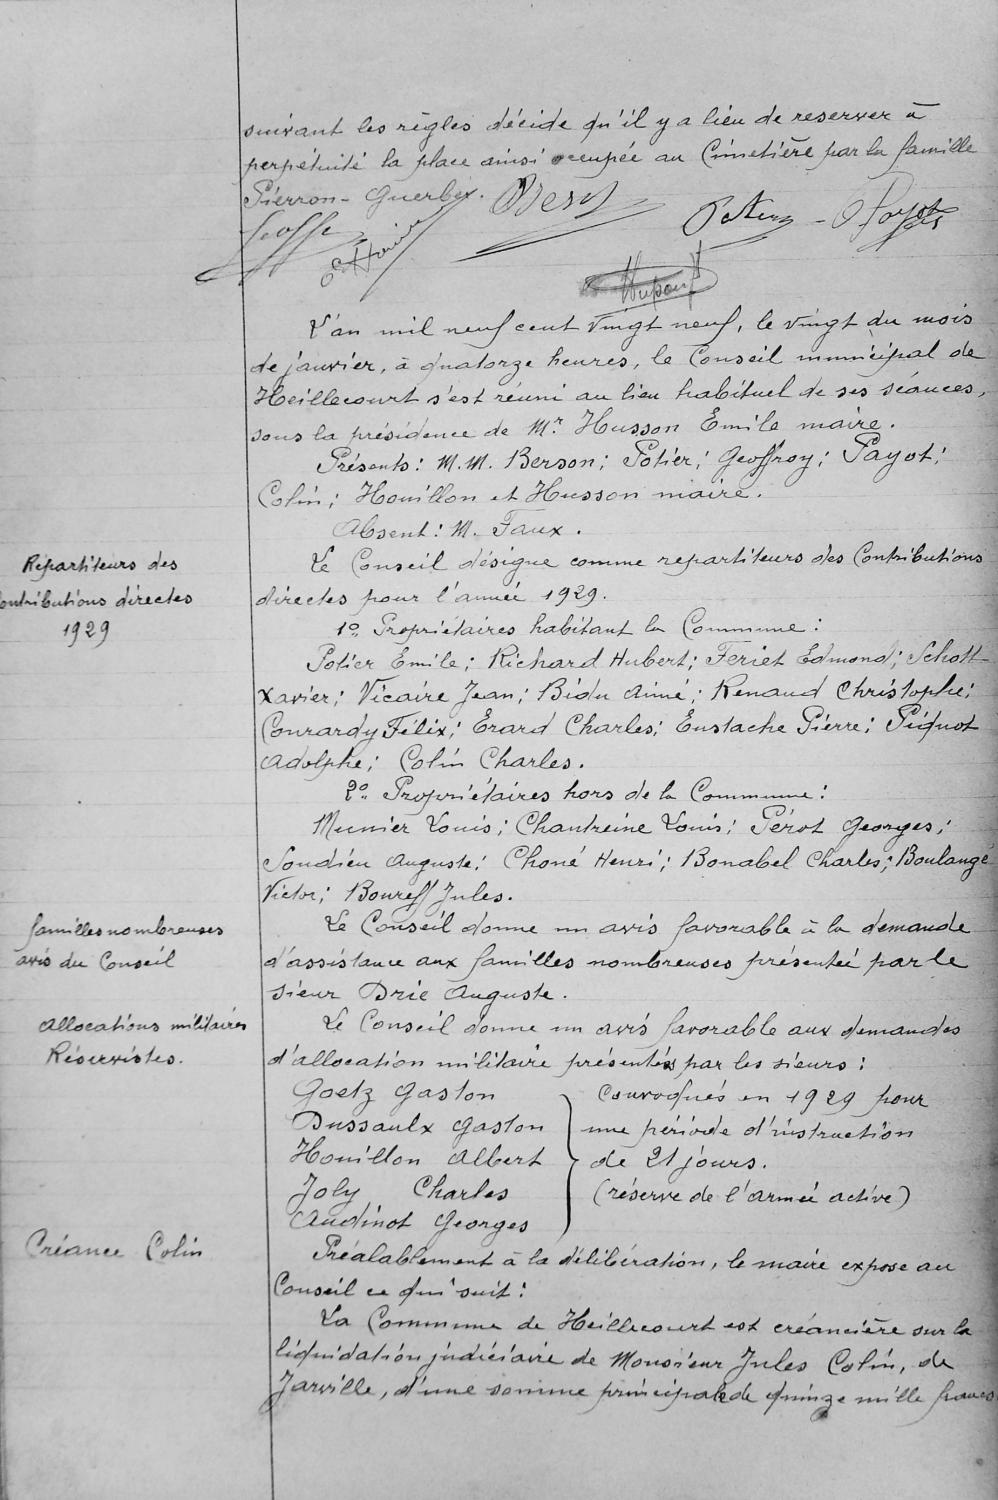 suivant les règles décide qu'il y a lieu de reserver à
perpétuité la place ainsi occupée au Cimetière par la famille
Pierron-Guerber.
L'an mil neuf cent vingt neuf, le vingt du mois
de janvier, à quatorze heures, le Conseil municipal de
Heillecourt s'est réuni au lieu habituel de ses séances,
sous la présidence de Mr. Husson Emile maire.
Présents: M.M. Berson; Potier; Geoffroy; Payot;
Colin; Houillon et Husson maire.
Absent: M. Faux.
Répartiteurs des
contributions directes
1929
Le Conseil désigne comme repartiteurs des Contributions
directes pour l'année 1929.
1o Propriétaires habitant la Commune:
Potier Emile; Richard Hubert; Feriet Edmond; Schott
Xavier; Vicaire Jean; Bidu Aimé; Renaud Christophe;
Conrardy Félix; Erard Charles; Eustache Pierre; Piquot
Adolphe; Colin Charles.
2o Propriétaires hors de la Commune:
Munier Louis; Chantreine Louis; Pérot Georges;
Soudieu Auguste; Choné Henri; Bonabel Charles; Boulangé
Victor; Boureff Jules.
familles nombreuses
avis du Conseil
Le Conseil donne un avis favorable à la demande
d'assistance aux familles nombreuses présentée par le
sieur Drie Auguste.
Allocations militaires
Réservistes.
Le Conseil donne un avis favorable aux demandes
d'allocation militaire présentés par les sieurs:
Goetz Gaston
Dussaulx Gaston
Houillon Albert
Joly Charles
Audinot Georges
convoqués en 1929 pour
une période d'instruction
de 21 jours.
(réserve de l'armée active)
Créance Colin
Préalablement à la délibération, le maire expose au
Conseil ce qui suit:
La Commune de Heillecourt est créancière sur la
liquidation judiciaire de Monsieur Jules Colin, de
Jarville, d'une somme principale de quinze mille francs